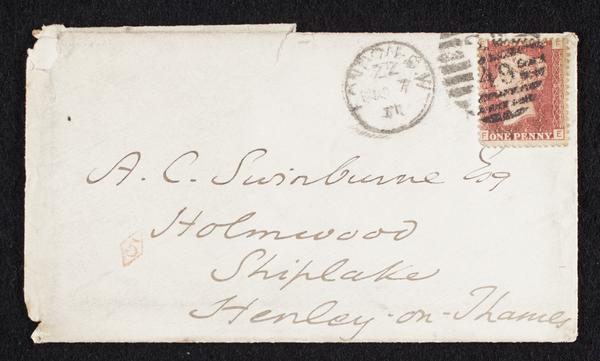 LONDON S.W
ZZ
7
49
ONE PENNY
E
A. C. Swinburne Esq
Holmwood
Shiplake
Henley-on-Thames